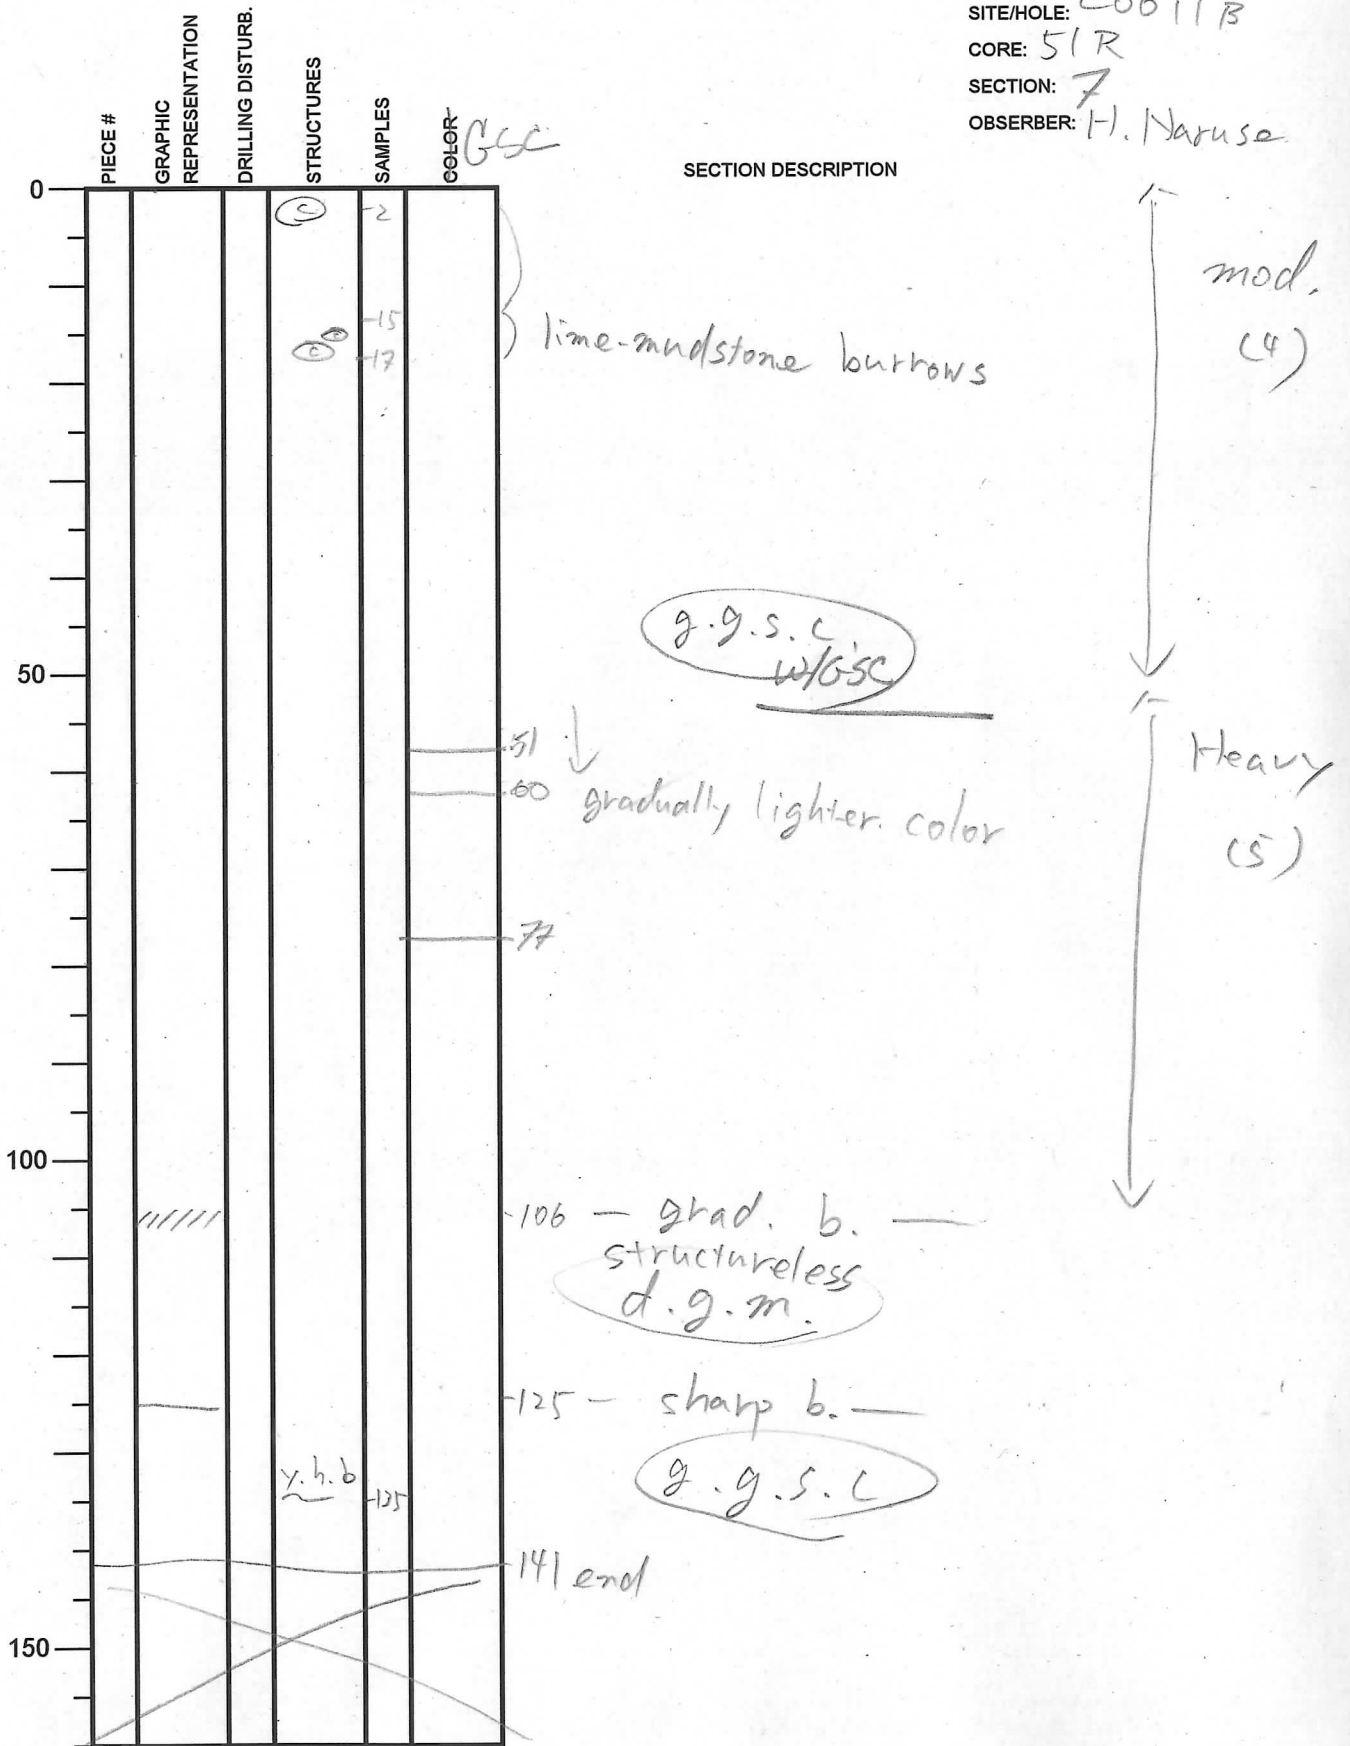 SITE/HOLE: C0011B
CORE: 51R
SECTION: 7
OBSERBER: H. Naruse
PIECE #
GRAPHIC
REPRESENTATION
DRILLING DISTURB.
STRUCTURES
SAMPLES
COLOR GSC
SECTION DESCRIPTION
0
c
2
mod.
(4)
15
c
17
lime-mudstone burrows
g.g.s.c.
w/GSC
50
51
Heavy
(5)
60
gradually lighter color
77
100
106 — grad. b. —
structureless
d.g.m.
125 — sharp b. —
y.h.b
135
g.g.s.c
141 end
150